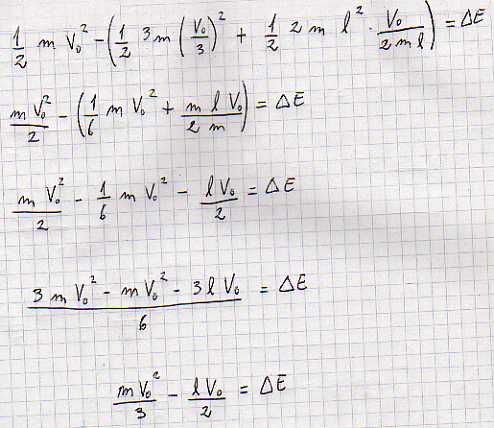 1/2 m V₀² - (1/2 3m (V₀/3)² + 1/2 2 m l² · V₀/2ml) = ΔE
mV₀²/2 - (1/6 m V₀² + m l V₀/2 m) = ΔE
m V₀²/2 - 1/6 m V₀² - l V₀/2 = ΔE
3 m V₀² - m V₀² - 3 l V₀/6 = ΔE
m V₀²/3 - l V₀/2 = ΔE